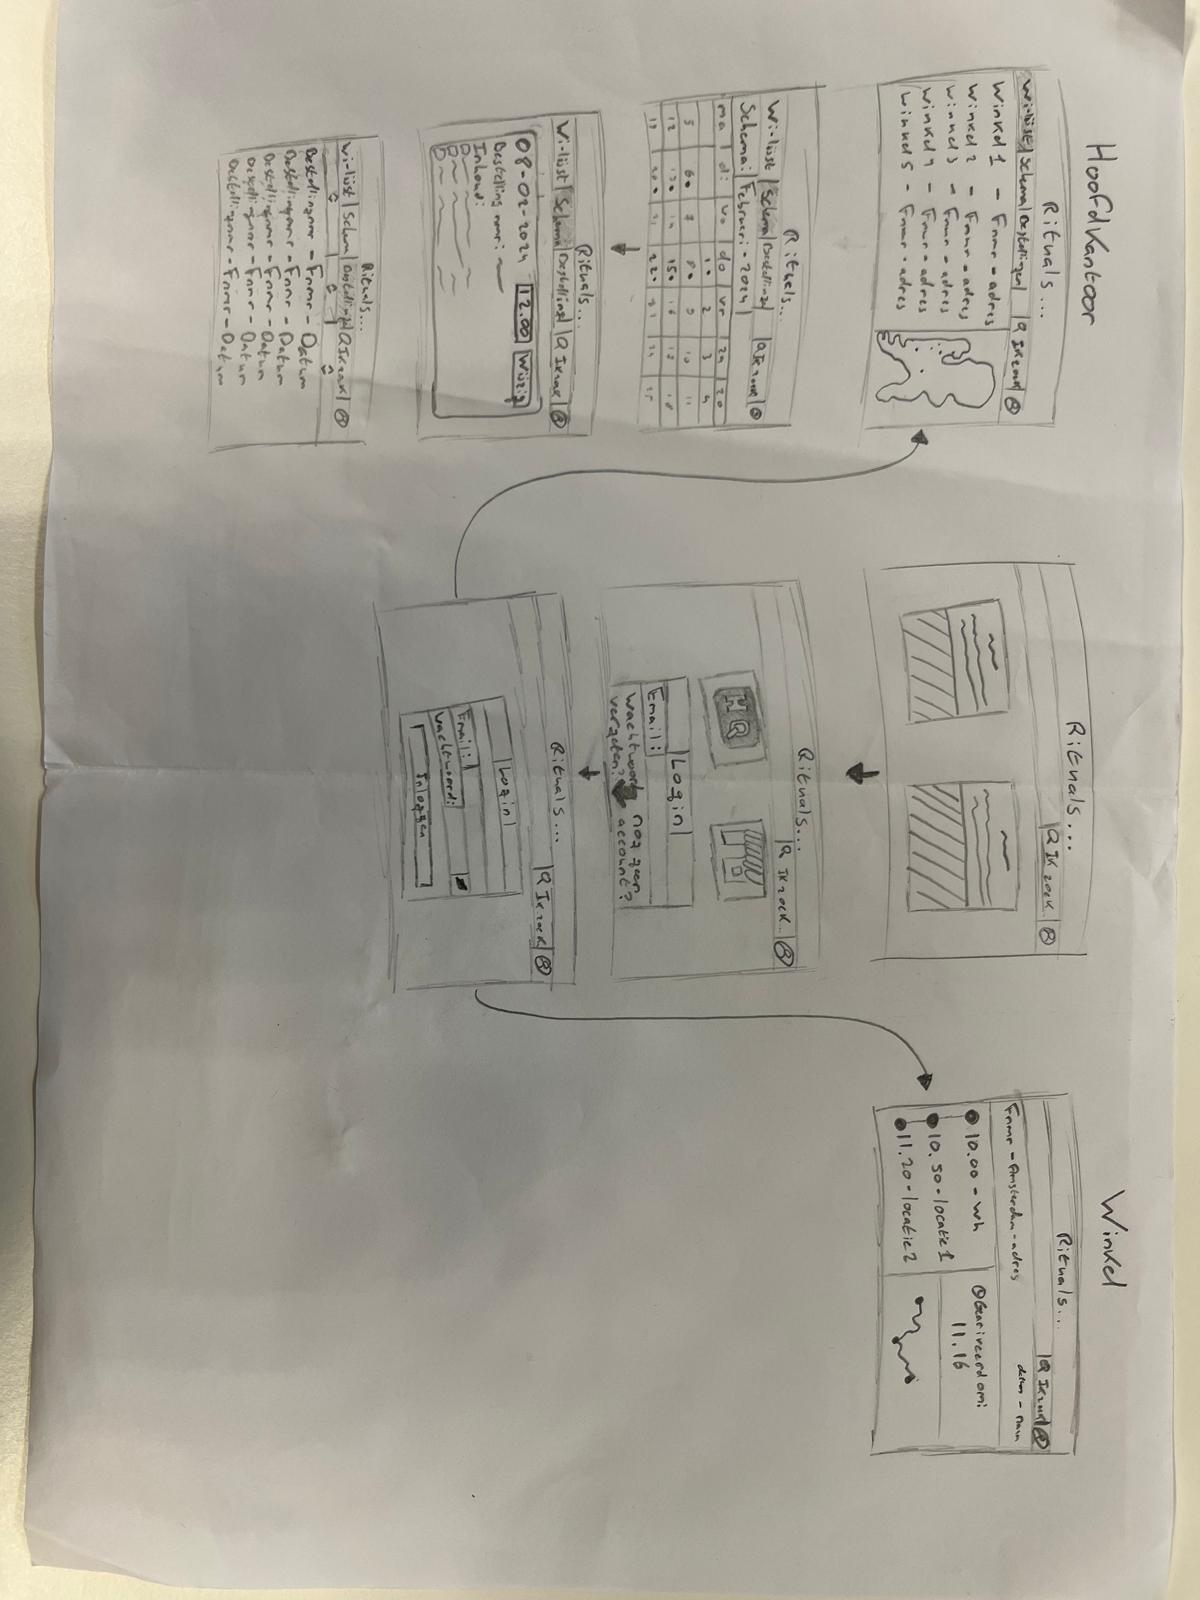 Hoofdkantoor
Rituals...
Wi-lijst | Schema | Bestellingen | Ik zoek
Winkel 1 - Fnmr - adres
Winkel 2 - Fnmr - adres
Winkel 3 - Fnmr - adres
Winkel 4 - Fnmr - adres
Winkel 5 - Fnmr - adres
Rituals...
Wi-lijst | Schema | Bestellingen | Ik zoek
Schema: Februari - 2024
ma di wo do vr za zo
1 2 3 4
5 6 7 8 9 10 11
12 13 14 15 16 17 18
19 20 21 22 23 24 25
Rituals...
Wi-lijst | Schema | Bestelling | Ik zoek
08-02-2024 12.00 Wijzig
Bestelling nmr:
Inhoud:
Rituals...
Wi-lijst | Schema | Bestelling | Ik zoek
Bestellingnmr - Fnmr - Datum
Bestellingnmr - Fnmr - Datum
Bestellingnmr - Fnmr - Datum
Bestellingnmr - Fnmr - Datum
Bestellingnmr - Fnmr - Datum
Rituals...
Ik zoek..
Rituals...
Ik zoek..
HQ
Login
Email:
Wachtwoord vergeten?
nog geen account?
Rituals...
Ik zoek
Login
Email:
Wachtwoord:
Inloggen
Winkel
Rituals...
Ik zoek
Fnmr - Amsterdam - adres
datum - naam
10.00 - Wh
10.50 - locatie 1
11.20 - locatie 2
Gearriveerd om:
11.16